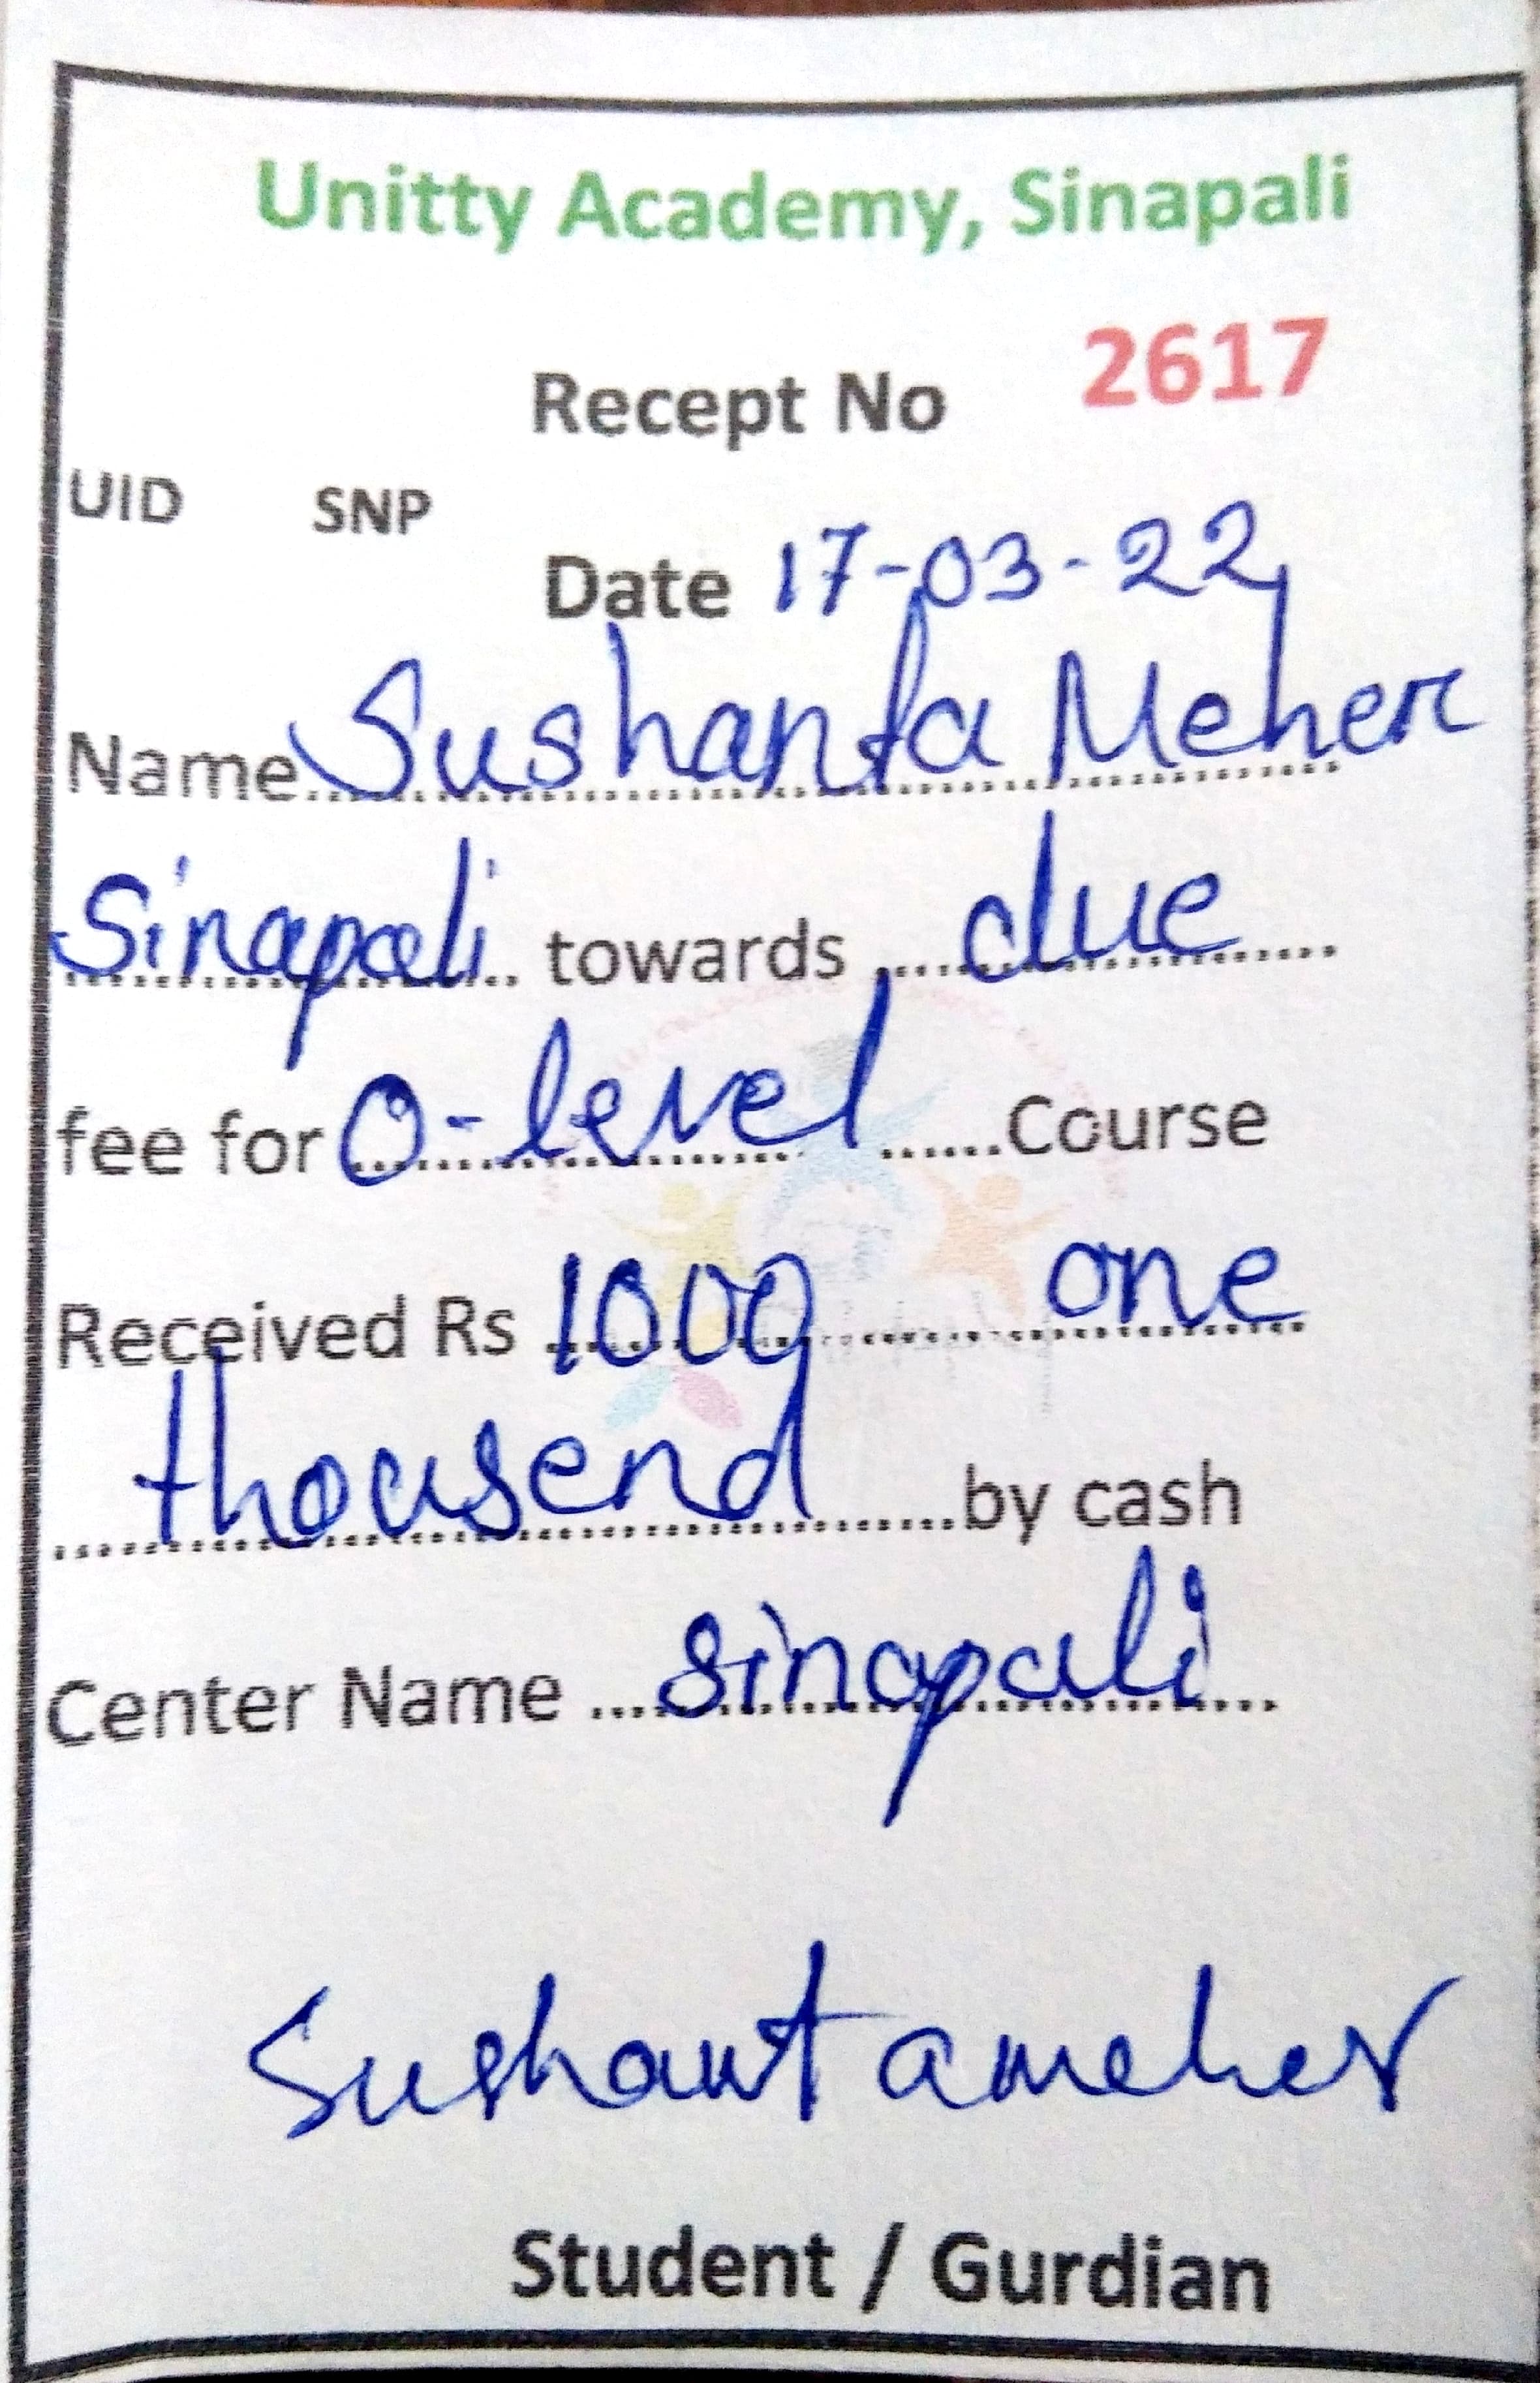 Unitty Academy, Sinapali
Recept No 2617
UID SNP
Date 17-03-22
Name..Sushanta Meher
Sinapali.. towards ....due.....
fee for O-level ......Course
Received Rs 1000 ............ one
thousend ..........by cash
Center Name ....sinapali...
Sushant ameher
Student / Gurdian